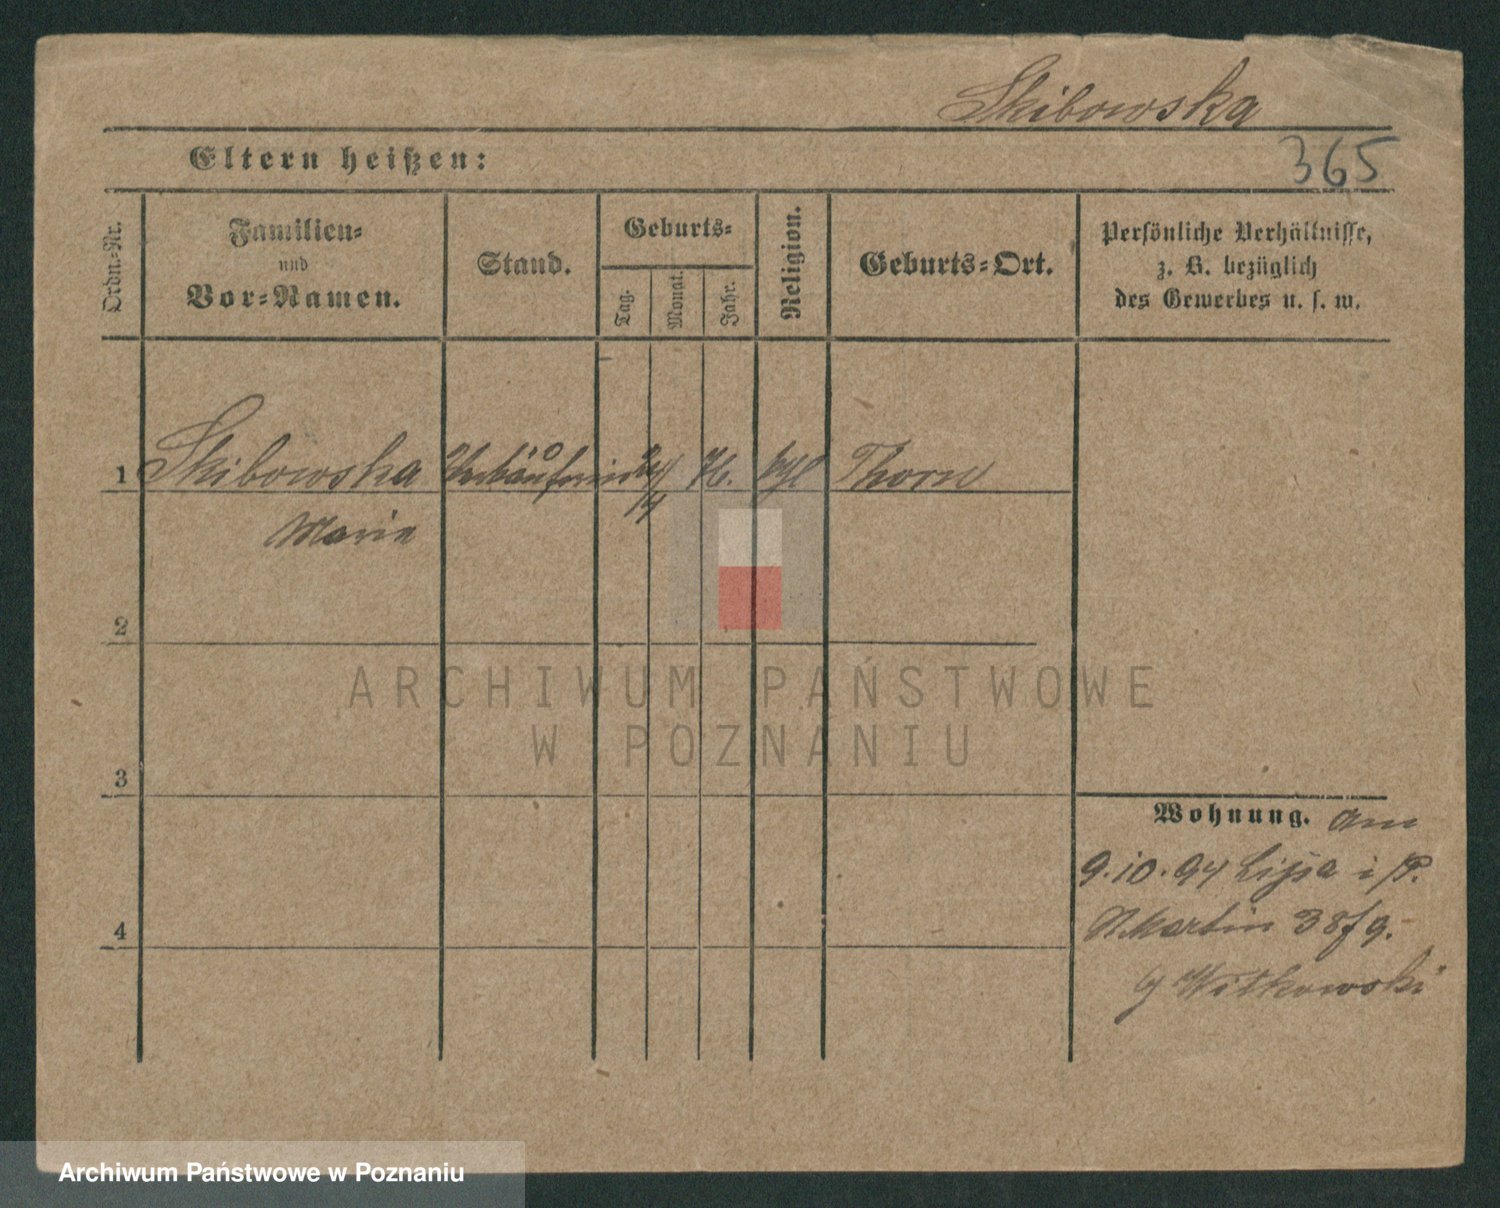 Skibowska
Eltern heißen:
365
Ordn.-Nr.
Familien-
und
Vor-Namen.
Stand.
Geburts-
Tag.
Monat.
Jahr.
Religion.
Geburts-Ort.
Persönliche Verhältnisse,
z. B. bezüglich
des Gewerbes u. s. w.
1 Skibowska Verkäuferin 24/ 76. kath Thorn
/4
Maria
2
ARCHIWUM PAŃSTWOWE
W POZNANIU
3
Wohnung. am
9.10.94 Lissa i/P.
St Martin 38 f g.
Witkowski
4
Archiwum Państwowe w Poznaniu